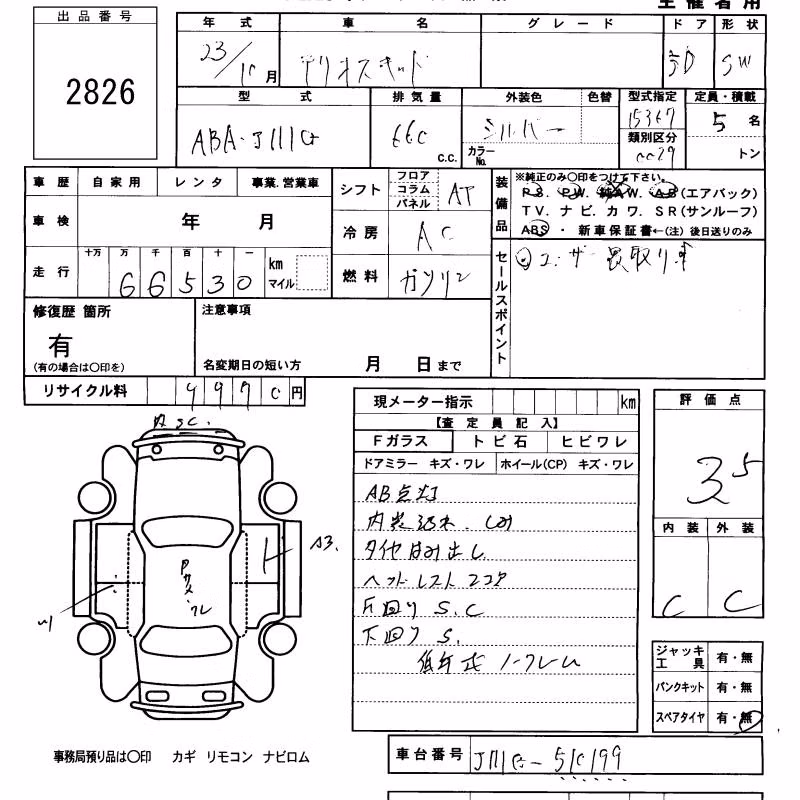 主催者用
出品番号
2826
年式 車名 グレード ドア 形状
23/10月 テリオスキッド 5D SW
型式 排気量 外装色 色替 型式指定 定員・積載
ABA-J111G 660 c.c. シルバー カラーNo. 15367 5名
類別区分
0029 トン
車歴 自家用 レンタ 事業.営業車
シフト フロア コラム パネル AT
装備品 ※純正のみ○印をつけて下さい。
P S. P W. 純A W. A B(エアバック)
T V. ナ ビ. カ ワ. S R(サンルーフ)
ABS ・ 新車保証書←(注) 後日送りのみ
車検 年 月
冷房 AC
走行 十万 万 千 百 十 一 km マイル
66530
燃料 ガソリン
セールスポイント
ユーザー買取り車
修復歴 箇所
有
(有の場合は○印を)
注意事項
名変期日の短い方 月 日まで
リサイクル料 9970円
現メーター指示 km
【査定員記入】
Fガラス トビ石 ヒビワレ
ドアミラー キズ・ワレ ホイール(CP) キズ・ワレ
AB点灯
内装汚れ.しみ
タイヤはみ出し
ヘッドレスト2コ欠
下回り S.C
下回り S.
低年式 ノークレーム
評価点
3.5
内装 外装
C C
A3.
ジャッキ工具 有・無
パンクキット 有・無
スペアタイヤ 有・無
事務局預り品は○印 カギ リモコン ナビロム
車台番号 J111G-510199